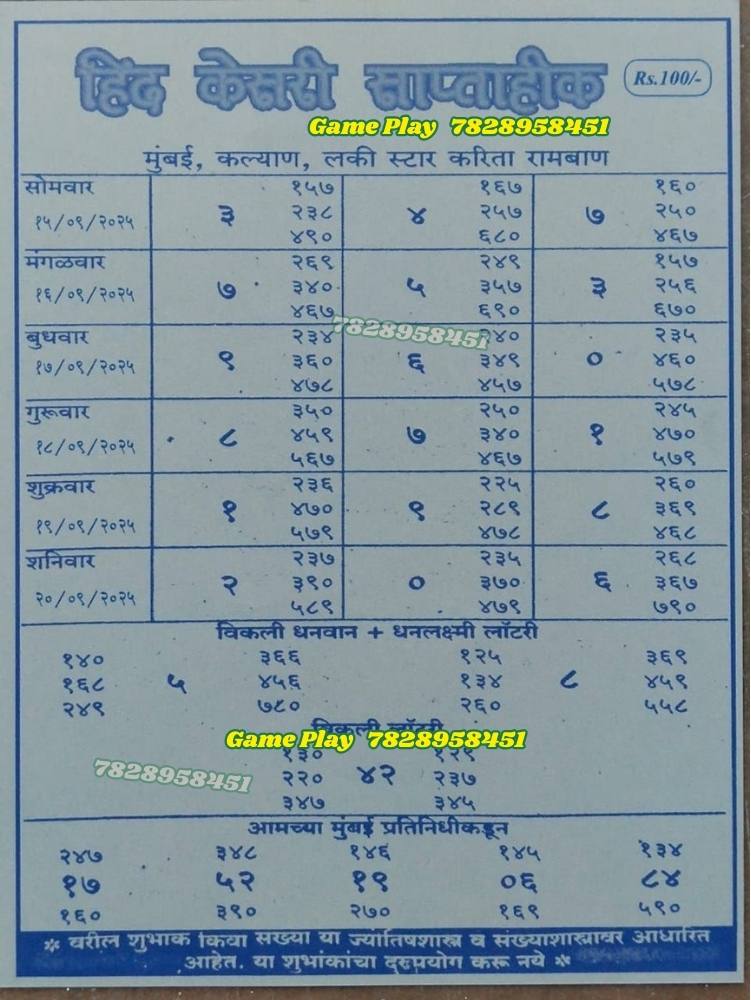 हिंद केसरी साप्ताहीक Rs.100/-
Game Play 7828958451
मुंबई, कल्याण, लकी स्टार करिता रामबाण
सोमवार १५७ १६७ १६०
१५/०९/२०२५ ३ २३८ ४ २५७ ७ २५०
४९० ६८० ४६७
मंगळवार २६९ २४९ १५७
१६/०९/२०२५ ७ ३४० ५ ३५७ ३ २५६
४६७ ६९० ६७०
7828958451
बुधवार २३४ २४० २३५
१७/०९/२०२५ ९ ३६० ६ ३४९ ० ४६०
४७८ ४५७ ५७८
गुरूवार ३५० २५० २४५
१८/०९/२०२५ ८ ४५९ ७ ३४० १ ४७०
५६७ ४६७ ५७९
शुक्रवार २३६ २२५ २६०
१९/०९/२०२५ १ ४७० ९ २८९ ८ ३६९
५७९ ४७८ ४६८
शनिवार २३७ २३५ २६८
२०/०९/२०२५ २ ३९० ० ३७० ६ ३६७
५८९ ४७९ ७९०
विकली धनवान + धनलक्ष्मी लॉटरी
१४० ३६६ १२५ ३६९
१६८ ५ ४५६ १३४ ८ ४५९
२४९ ७८० २६० ५५८
विकली लॉटरी
Game Play 7828958451
१३० १२९
7828958451 २२० ४२ २३७
३४७ ३४५
आमच्या मुंबई प्रतिनिधीकडून
२४७ ३४८ १४६ १४५ १३४
१७ ५२ १९ ०६ ८४
१६० ३९० २७० १६९ ५९०
* वरील शुभाक किवा सख्या या ज्योतिषशास्त्र व संख्याशास्त्रावर आधारित
आहेत. या शुभांकांचा दुरुपयोग करू नये *